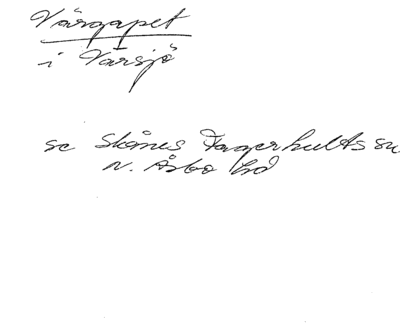 Vårgapet
i Vårsjö
se Skånes Fagerhults sn
N. Åsbo hd